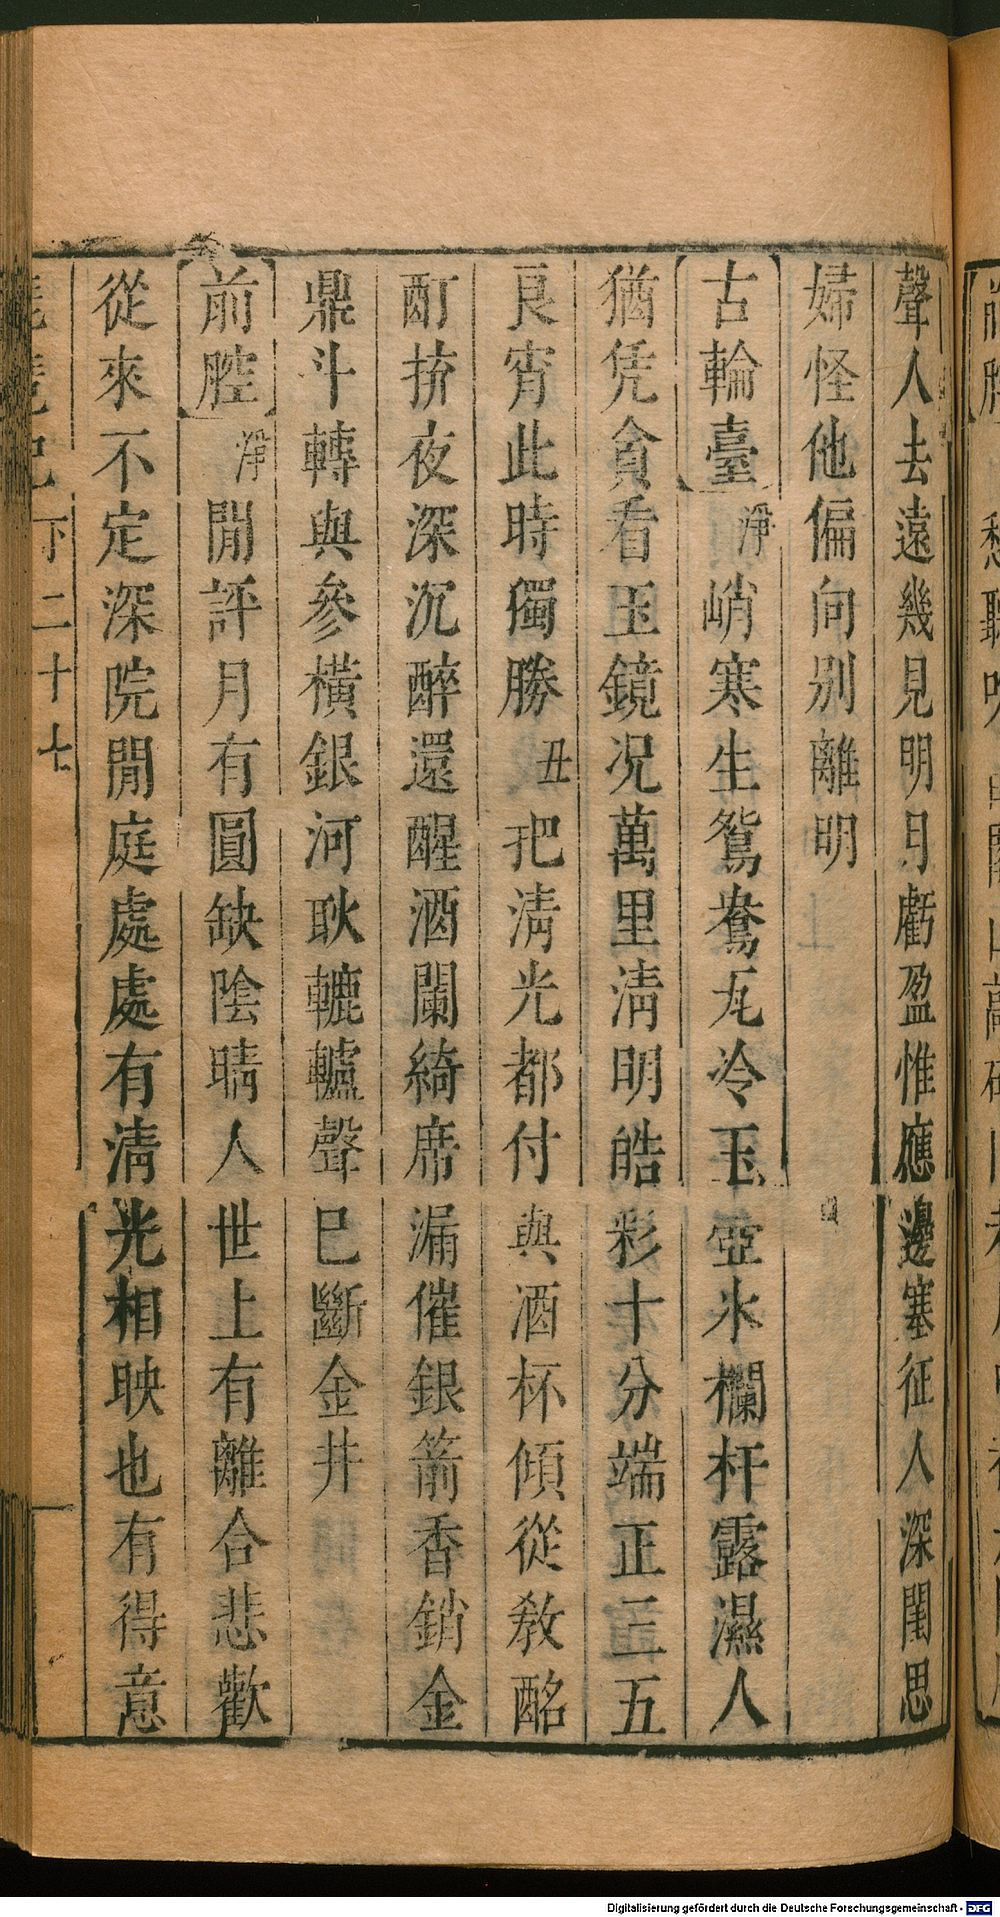 聲人去遠幾見明月虧盈惟應邊塞征人深閨思
婦怪他偏向別離明
【古輪臺】淨峭寒生鴛鴦瓦冷玉壺氷欄杆露濕人
猶凭貪看玉鏡况萬里淸明皓彩十分端正三五
良宵此時獨勝丑把淸光都付與酒杯傾從教酩
酊拚夜深沉醉還醒酒闌綺席漏催銀箭香銷金
鼎斗轉與參橫銀河耿轆轤聲巳斷金井
【前腔】淨閒評月有圓缺陰晴人世上有離合悲歡
從來不定深院閒庭處處有淸光相映也有得意
下二十七
Digitalisierung gefördert durch die Deutsche Forschungsgemeinschaft - DFG